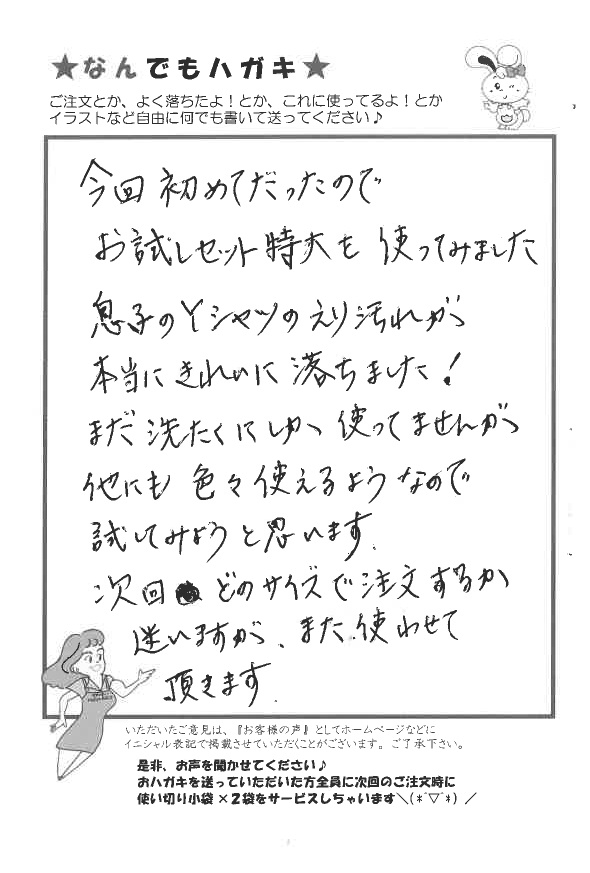 ★なんでもハガキ★
ご注文とか、よく落ちたよ！とか、これに使ってるよ！とか
イラストなど自由に何でも書いて送ってください♪
今回初めてだったので
お試しセット特大を使ってみました
息子のYシャツのえり汚れが
本当にきれいに落ちました！
まだ洗たくにしか使ってませんが
他にも色々使えるようなので
試してみようと思います.
次回どのサイズで注文するか
迷いますが、また使わせて
頂きます.
いただいたご意見は、『お客様の声』としてホームページなどに
イニシャル表記で掲載させていただくことがございます。ご了承下さい。
是非、お声を聞かせてください♪
おハガキを送っていただいた方全員に次回のご注文時に
使い切り小袋×2袋をサービスしちゃいます＼(*ﾟ▽ﾟ*)／